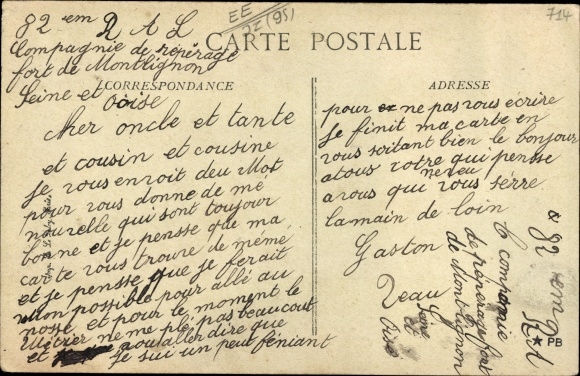 82 em R A L
EE
ZZ (95)
714
Compagnie de repérage
fort de Montlignon
Seine et Oise
CARTE POSTALE
CORRESPONDANCE
ADRESSE
Cher oncle et tante
et cousin et cousine
Je vous envoit deu Mot
pour vous donne de mé
nouvelle qui sont toujour
bonne et je pensse que ma
carte vous trouve de mémé
et je pensse que je ferait
Mon possible pour allé au
nosse et pour le moment le
Métier ne me plé pas beaucout
et aou aller dire que
je sui un peut féniant
pour ne pas vous écrire
Je finit ma carte en
vous soitant bien le bonjour
a tous votre neveu qui pensse
a vous qui vous sérre
la main de loin
Gaston
Zeau
82 em
R A
6 compagnie
de reperage fort
de Montlignon
Seine
et
Oise
PB